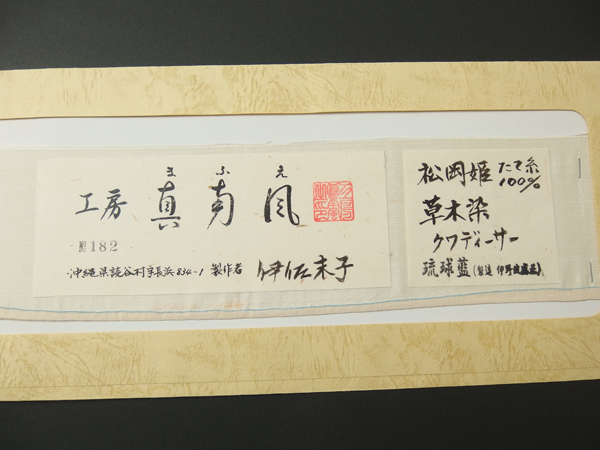 まふえ
工房 真南風
№182
沖縄県読谷村字長浜834-1 製作者 伊佐末子
松岡姫 たて糸
100%
草木染
クワディーサー
琉球藍(製造